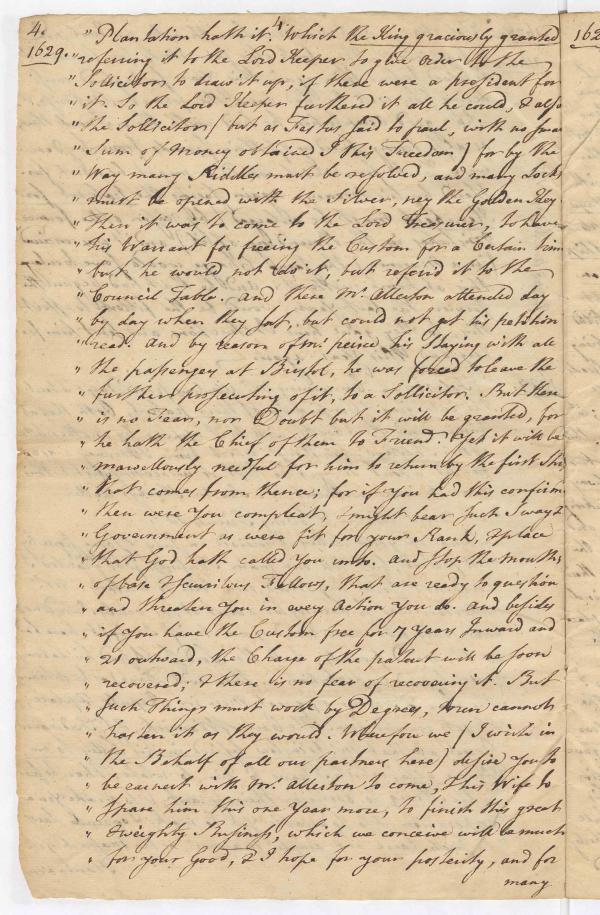 4.
1629.
" Plantation hath it. 4. Which the King graciously granted
" referring it to the Lord Keeper to give order to the
" Sollicitor to draw it up, if there were a president for
" it. So the Lord Keeper furthered it all he could, & also
" the Sollicitor ( but as Festus said to paul, with no sma
" Sum of Money obtained I this Freedom ) for by the
" Way many Riddles must be resolved, and many Locks
" must be opened with the Silver, ney the Golden Key.
" Then it was to come to the Lord Treasurer, to have
" his Warrant for freeing the Custom for a Certain tim
" but he would not do it, but referrd it to the
" Council Table. And there Mr. Allerton attended day
" by day when they sat, but could not get his petition
" read. And by reason of Mr. peirce his Staying with all
" the passengers at Bristol, he was forced to leave the
" further prosecuting of it, to a Sollicitor. But there
" is no Fear, nor Doubt but it will be granted, for
" he hath the Chief of them to Friend. Yet it will be
" marvellously needful for him to return by the first Ship
" that comes from thence; for if You had this confirm
" then were You compleat, & might bear Such Sway &
" Government as were fit for your Rank, & place
" that God hath called You unto. And stop the mouths
" of base & Scurrilous Fellows, that are ready to question
" and threaten You in every Action You do. And besides
" if You have the Custom free for 7 Years Inward and
" 21 outward, the Charge of the patent will be soon
" recovered; & there is no fear of recovering it. But
" Such Things must work by Degrees, men cannot
" hasten it as they would. Wherefore we ( I write in
" the Behalf of all our partners here ) desire You to
" be earnest with Mr. Allerton to come, & his Wife to
" Spare him this one Year more, to finish this great
" & weighty Business, which we conceive will be much
" for your Good, & I hope for your posterity, and for
many
162